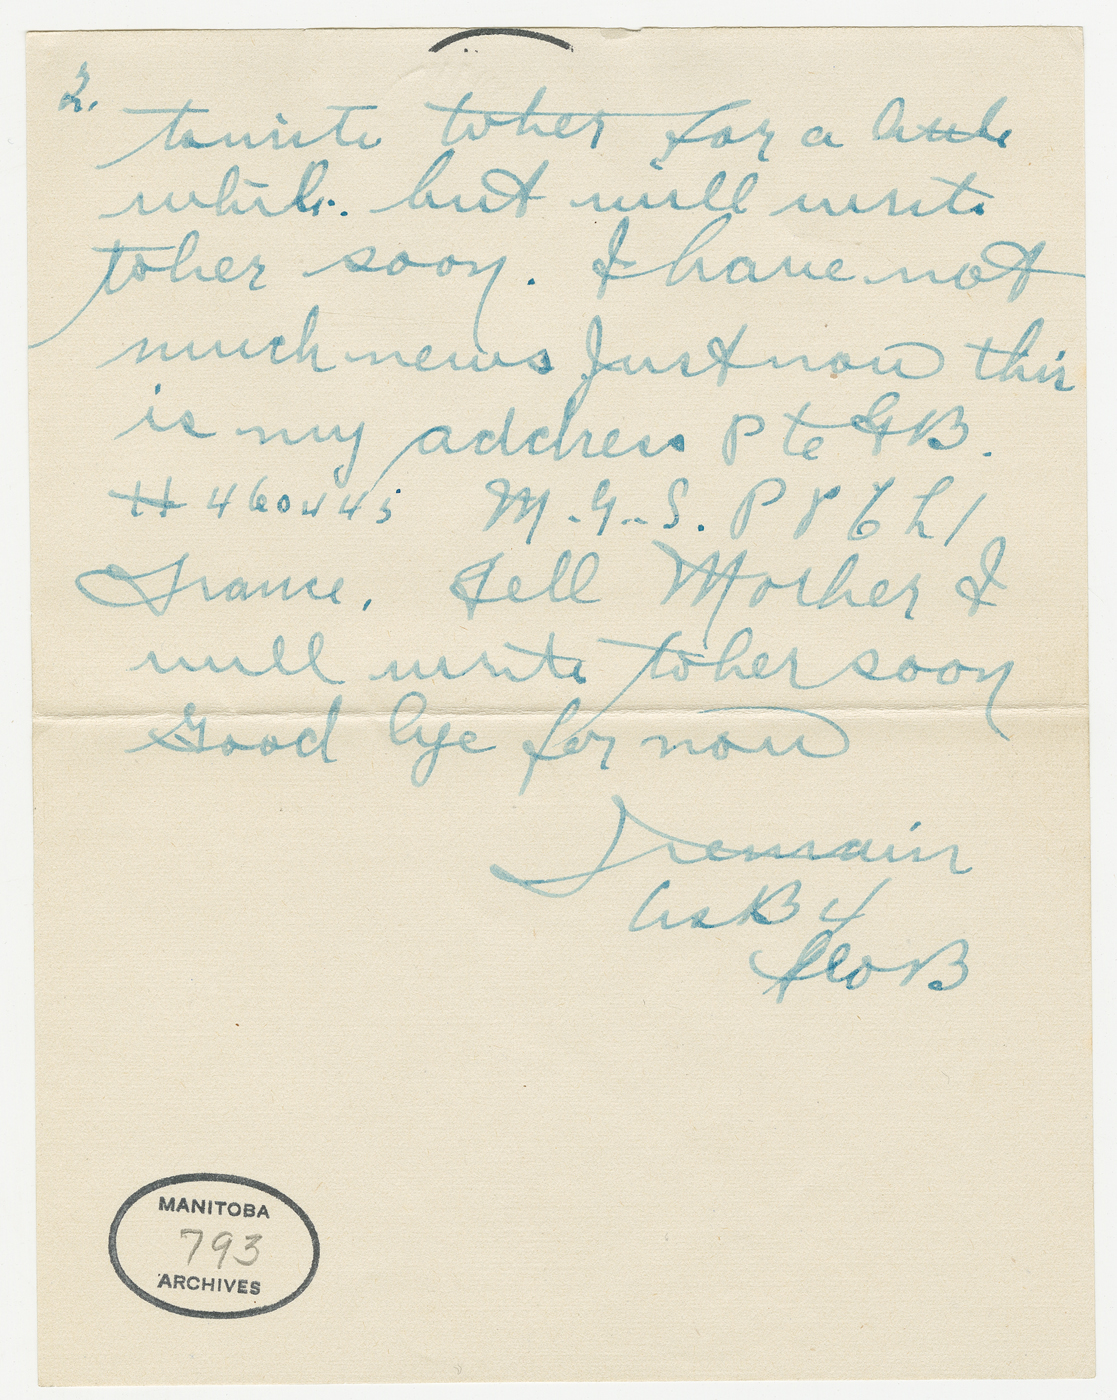 2.
to write to her for a little
while. but will write
to her soon. I have not
much news Just now this
is my address Pte G B.
# 460445 M.G.S. P P
France. Tell Mother I
will write to her soon
Good bye for now
I remain
as B 4
Geo B
MANITOBA
793
ARCHIVES